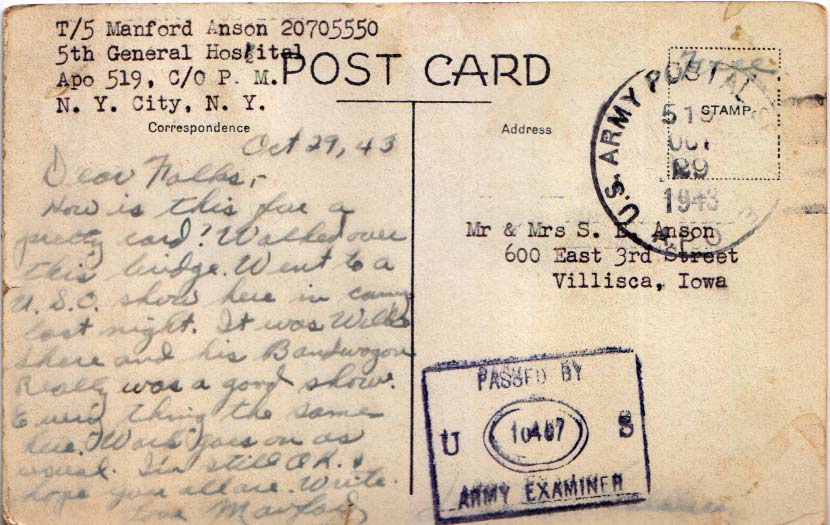 T/5 Manford Anson 20705550
5th General Hospital
Apo 519, C/O P. M.
N. Y. City, N. Y.
POST CARD
Correspondence
Address
Free
STAMP
U.S. ARMY POSTAL
519
OCT
29
1943
A P O
Oct 29, 43
Dear Folks,-
How is this for a
pretty card? Walked over
this bridge. Went to a
U. S. O. show here in camp
last night. It was Willie
Shore and his Bandwagon
Really was a good show.
Every thing the same
here. Work goes on as
usual. I'm still O.K. &
hope you all are. Write.
Love Manford
Mr & Mrs S. E. Anson
600 East 3rd Street
Villisca, Iowa
PASSED BY
U 10467 S
ARMY EXAMINER